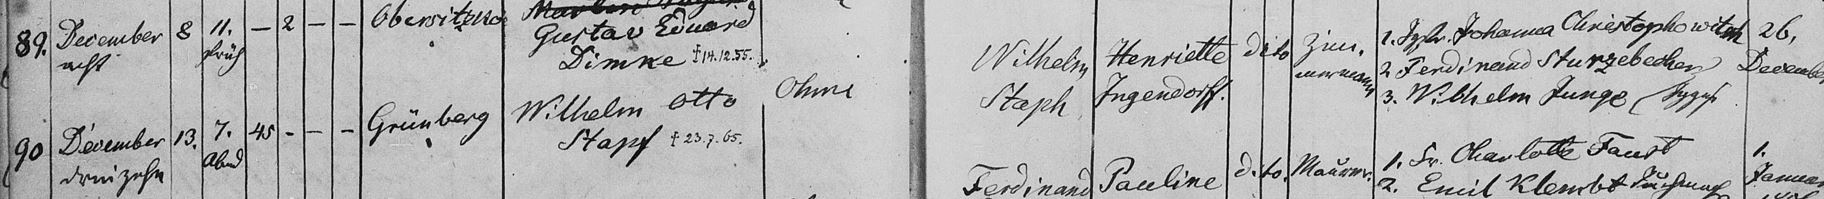 89. December 8 11. — 2 — — Obersitzko
acht Früh
Gustav Eduard
Dimke †14.12.55.
90 December 13. 7. 45 - — — Grünberg Wilhelm Otto Ohne
dreizehn Abend Stapf †23.7.65.
Wilhelm Henriette dito Zim- 1. Johanna Christophowitsch 26,
Staph Jngendorff. mermann 2 Ferdinand Sturzebecher December
3. Wilhelm Junge
Ferdinand Pauline dito. Maurer. 1. Fr. Charlotte Faust 1.
2. Emil Klembt Januar